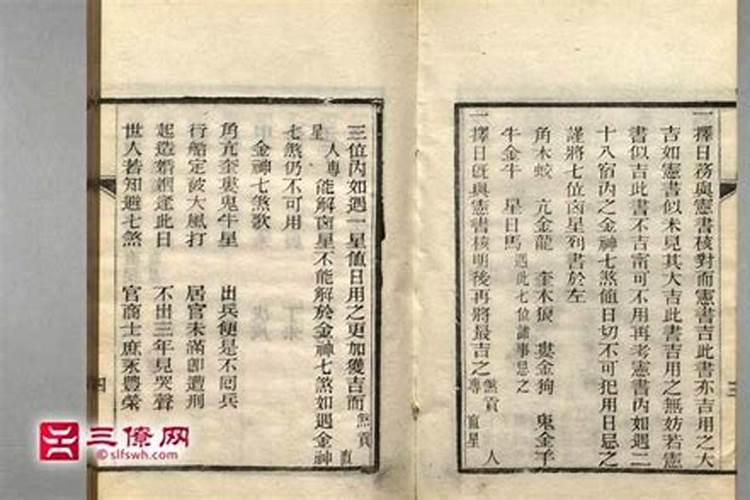 一擇日務與憲書核對而憲書吉此書亦吉用之大
吉如憲書似未見其大吉此書吉用之無妨若憲
書似吉此書不吉甯可不用再考憲書內如遇二
十八宿內之金神七煞值日切不可犯用日忌之
謹將七位凶星列書於左
角木蛟 亢金龍 奎木狼 婁金狗 鬼金羊
牛金牛 星日馬 遇此七位諸事忌之
一擇日旣與憲書核明後再將最吉之煞貢專直星人
三位內如遇一星值日用之更加獲吉而煞貢直
星人專能解凶星不能解於金神七煞如遇金神
七煞仍不可用
金神七煞歌
角亢奎婁鬼牛星 出兵便是不囘兵
行船定被大風打 居官未滿卽遭刑
起造婚姻逢此日 不出三年見哭聲
世人若知避七煞 官商士庶永豐榮
四
三
三僚网
©slfswh.com